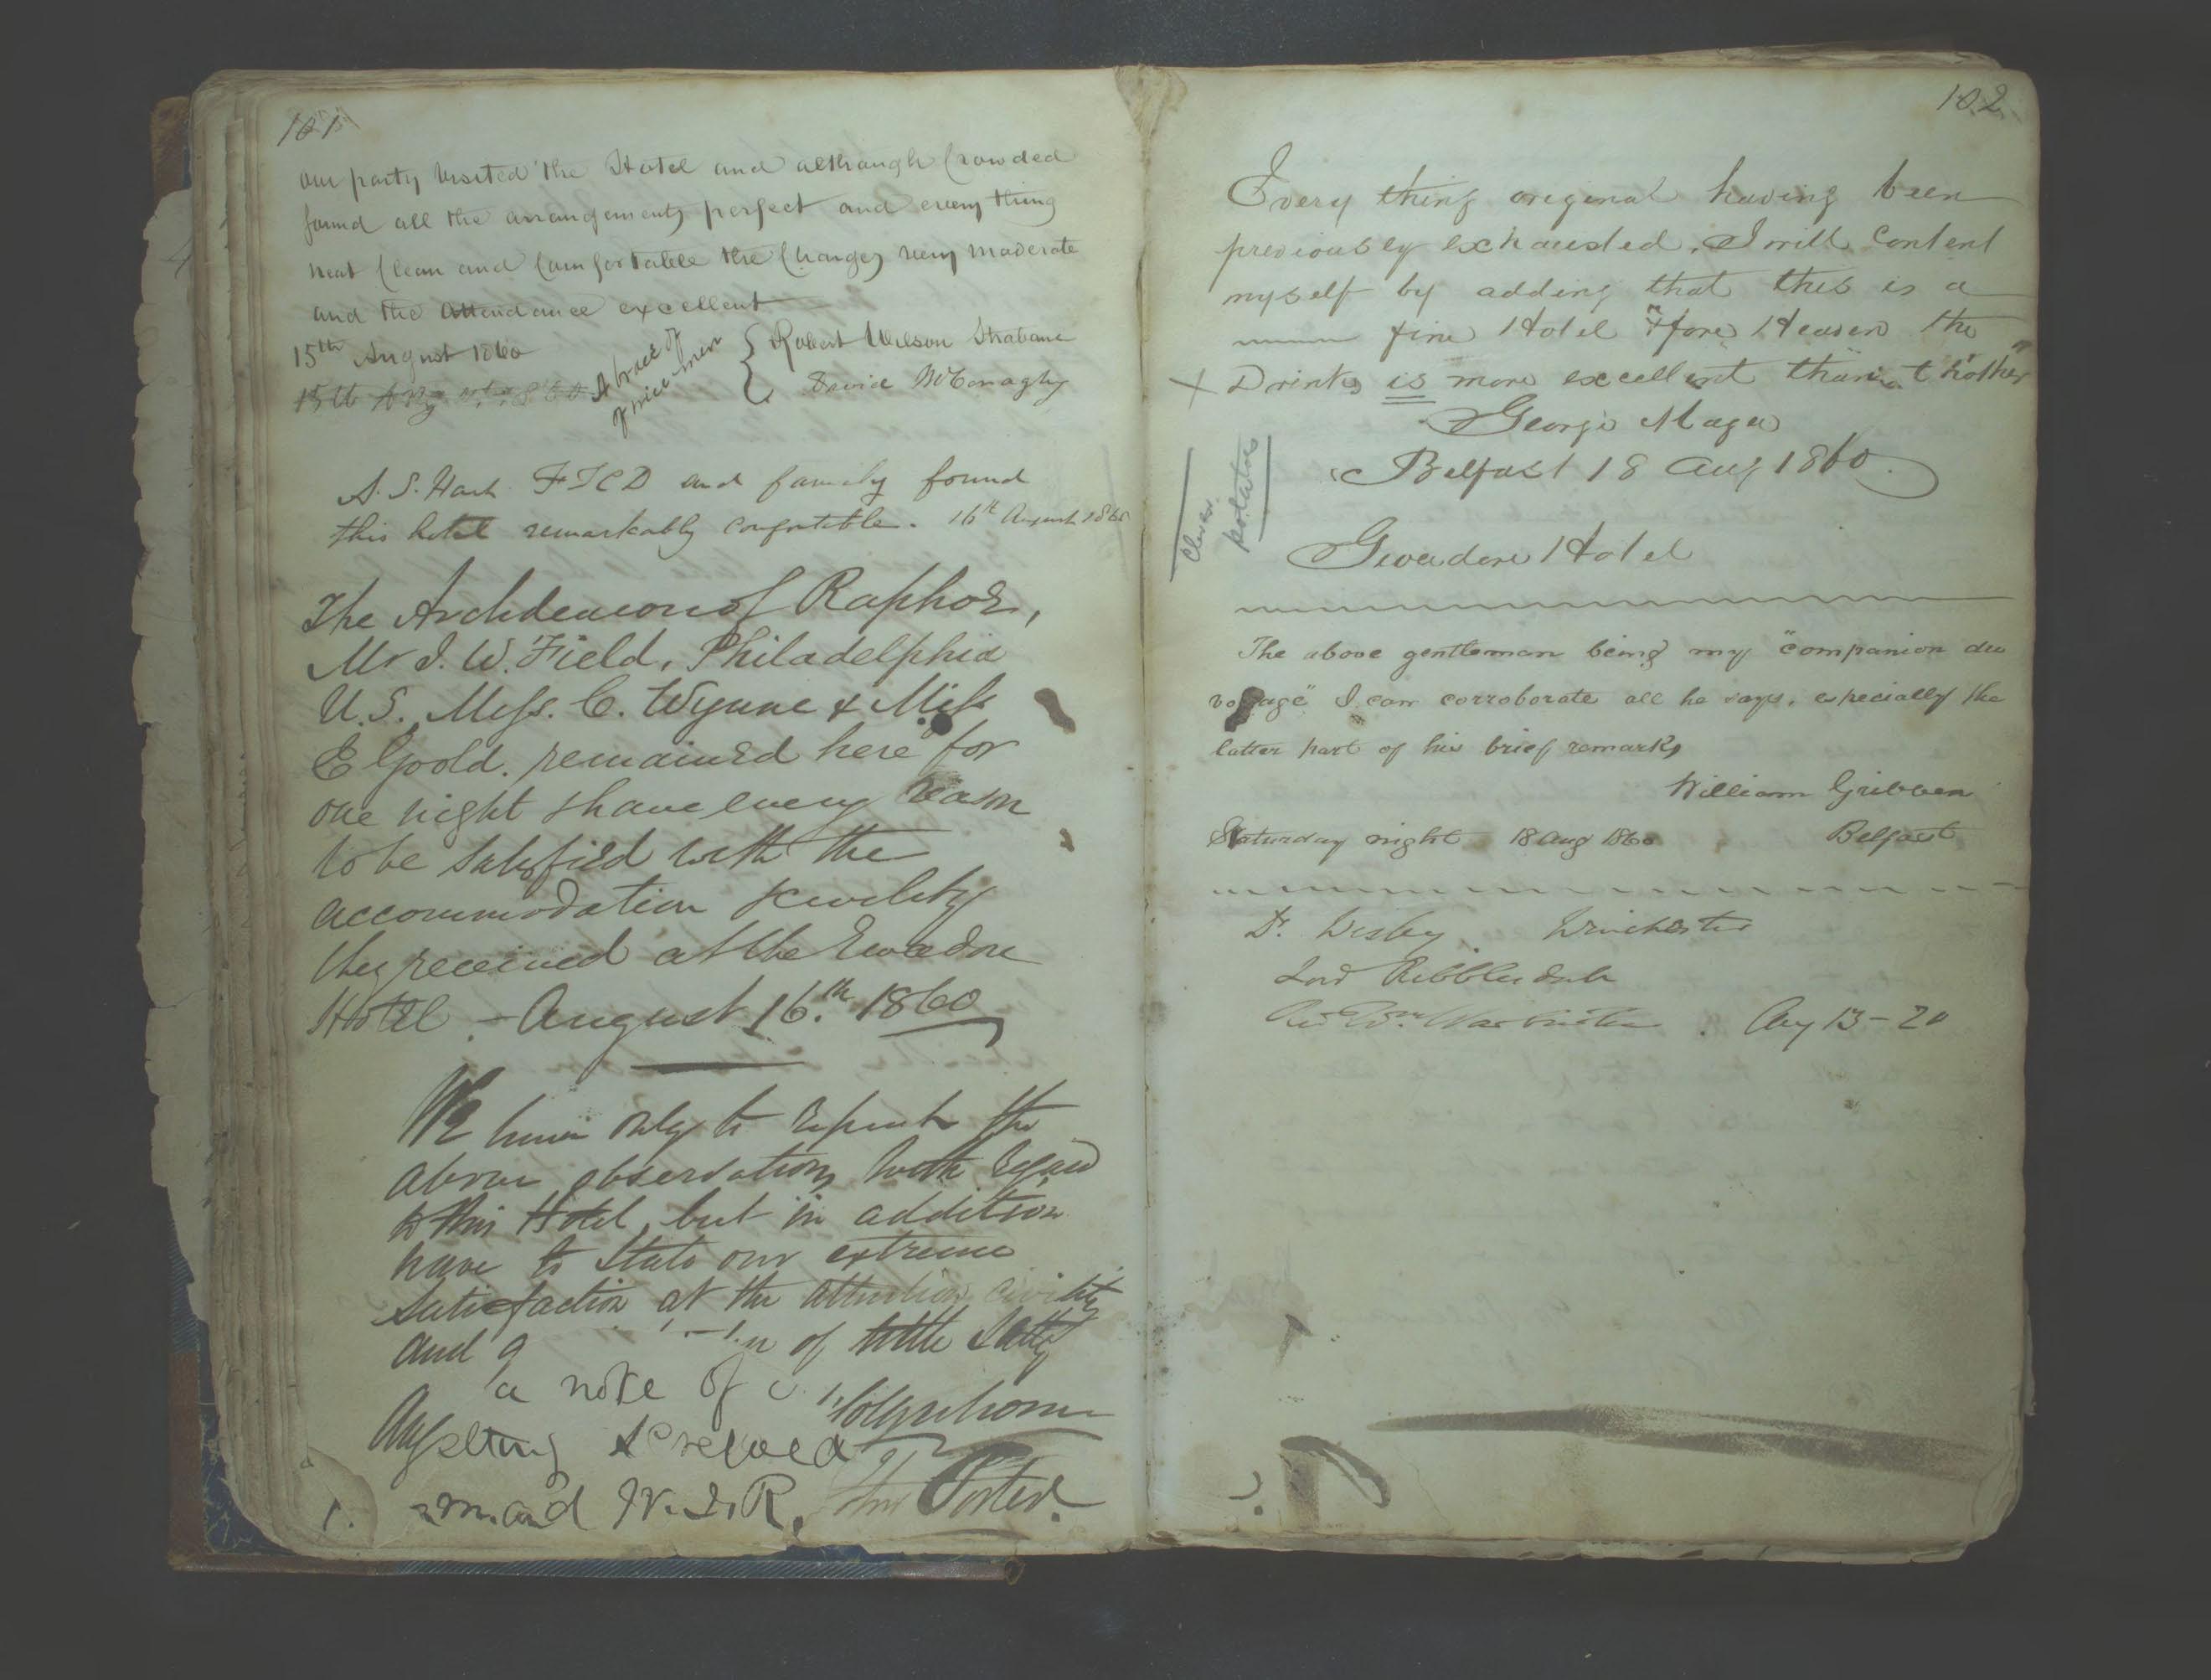 101
our party visited the Hotel and although Crowded
found all the arrangements perfect and every thing
neat Clean and Comfortable the Charges very moderate
and the Attendance excellent
15th August 1860
A brace of
nice men
{ Robert Wilson Strabane
David McConaghy
A. S. Hart FTCD and family found
this hotel remarkably comfortable. 16th August 1860
The Archdeacon of Raphoe,
Mr J. W. Field, Philadelphia
U.S., Miss. C. Wynne & Miss
E Goold. remained here for
one night & have every reason
to be satisfied with the
accommodation & civility
they received at the Gweedore
Hotel. - August 16.th 1860
We have only to repeat the
above observations with regard
to this Hotel, but in addition
have to State our extreme
Satisfaction at the attention civility
and of little
a note of
Aug
and W. I. R.
John Porter.
102
Every thing original having been
previously exhausted, I will content
myself by adding that this is a
fine Hotel & fore Heaven the
X Drinks is more excellent than t'hother
George Magee
Belfast 18 Aug 1860.
Clever
potatoe
Gweadore Hotel
The above gentleman being my "companion du
voyage" I can corroborate all he says, especially the
latter part of his brief remarks
William Gribben
Saturday night 18 Aug 1860 Belfast
Dr. Winchester
Lord Ribblesdale
Aug 13-20